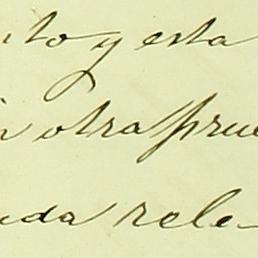 ito y esta
n otra prue
uda rele-